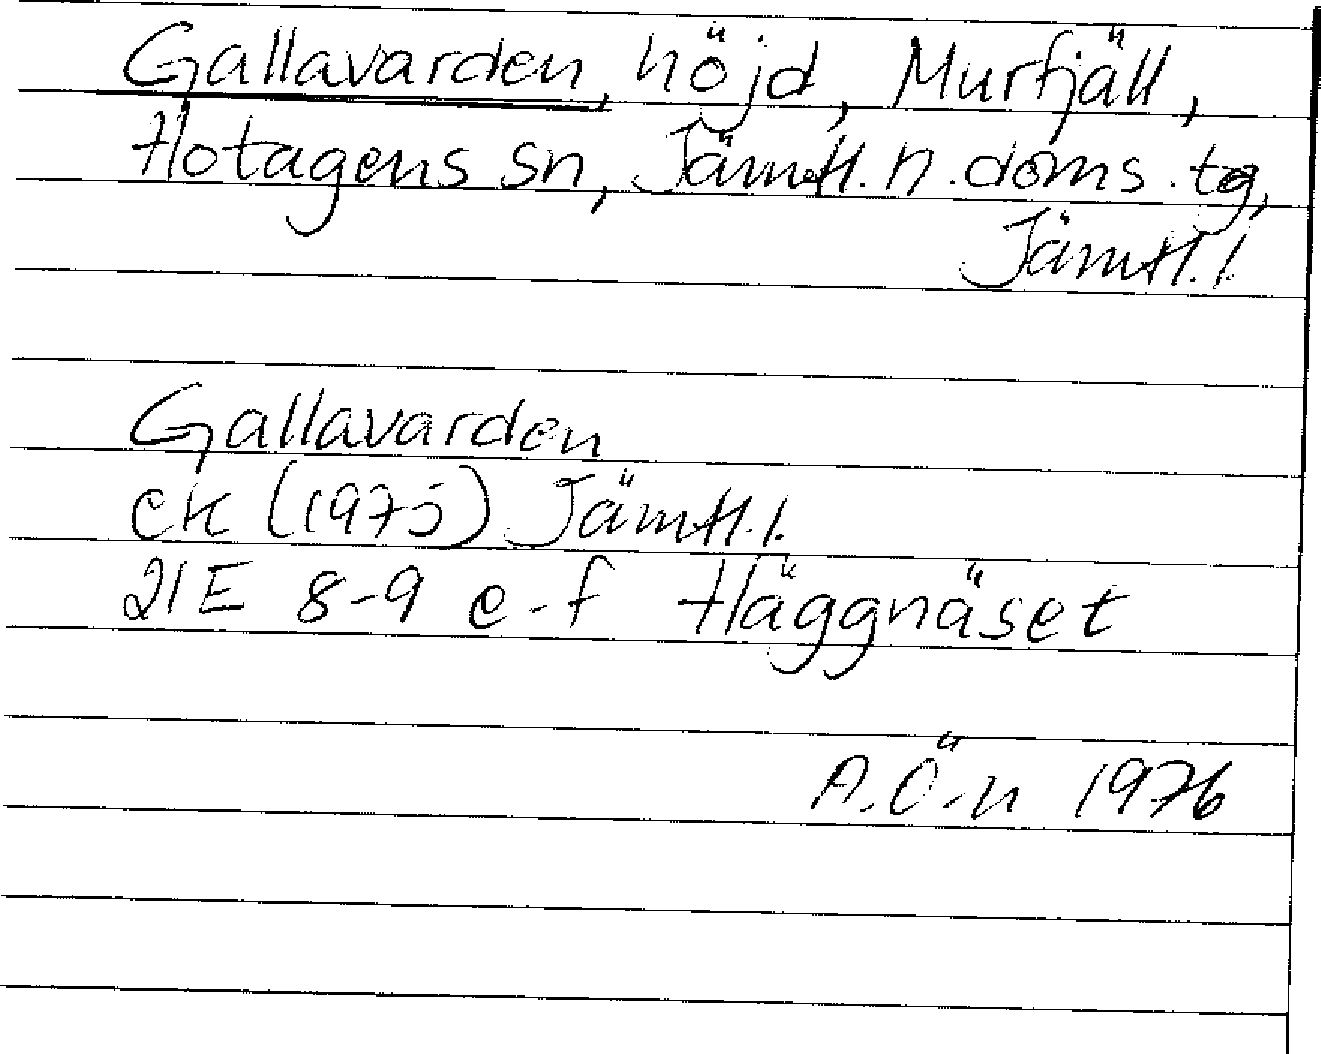 Gallavarden, höjd, Murfjäll,
Hotagens sn, Jämtl. n. doms. tg,
Jämtl. l.
Gallavarden
ek (1975) Jämtl. l.
21E 8-9 e-f Häggnäset
A.Ö-n 1976